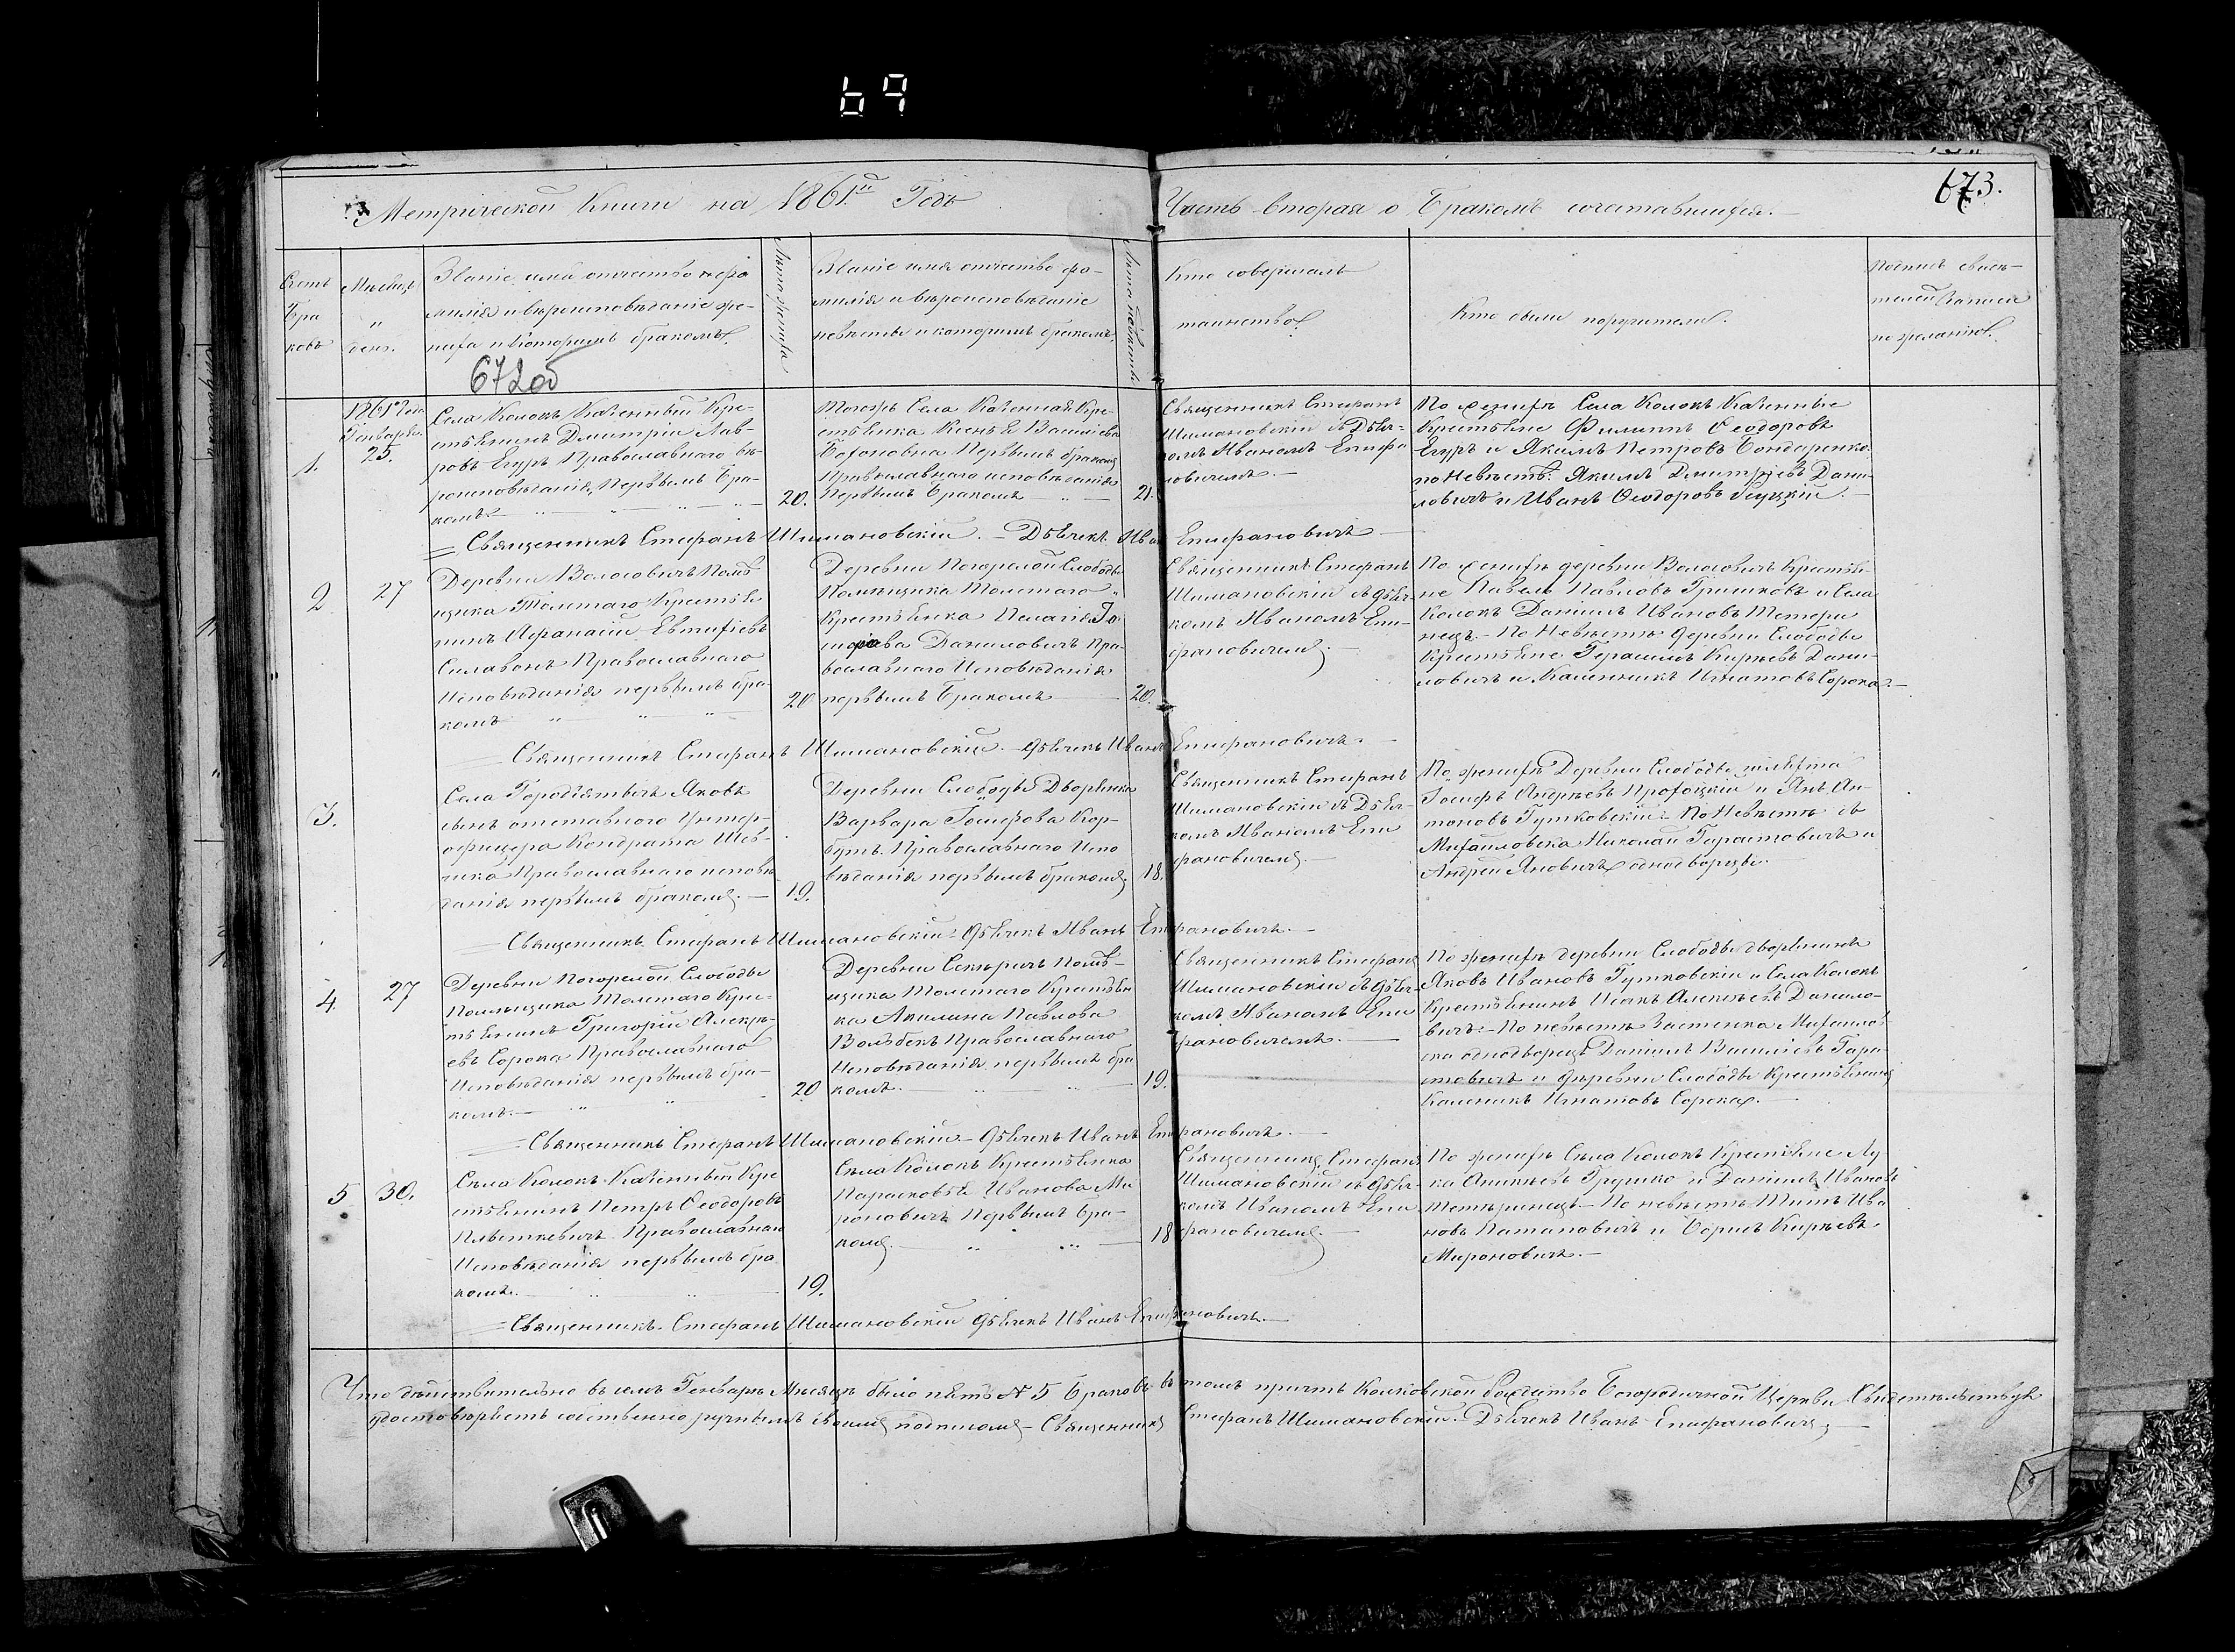 69
673.
Метрической Книги на 1861й Годъ
Часть вторая о Бракомъ сочетавшихся.
Счетъ
Бра
ковъ
Мѣсяцъ
"
день.
Званіе имя отчество и фа
милія и вѣроисповѣданіе же-
ниха и которымъ бракомъ.
Лѣта жениха
Званіе имя отчество фа-
милія и вѣроисповѣданіе
невѣсты и которымъ бракомъ.
Лѣта невѣсты
Кто совершалъ
таинство.
Кто были поручители.
Подпись свидѣ-
телей записи
по желанію.
672об
1.
1861 Года
Генваря.
25.
Села Колокъ Казенный Кре-
стьянинъ Димитрій Лав-
ровъ Егуръ Православнаго вѣ-
роисповѣданія, первымъ Бра-
комъ.
20.
Тогожъ Села Казенная Кре-
стьянка Васильева
первымъ бракомъ
Православнаго исповѣданія
первымъ Бракомъ
21.
Священникъ Стефанъ
Шимановскій съ Дьяч-
комъ Иваномъ Епифа
новичемъ.
По женихѣ Села Колокъ Казенные
Крестьяне Филиппъ Ѳеодоровъ
Егуръ и Якимъ Петровъ Бондаренко.
по Невѣстѣ: Якимъ Дмитріевъ Дани-
ловичъ и Иванъ Ѳеодоровъ
Священникъ Стефанъ Шимановскій. Дьячекъ Иванъ Епифановичъ
2
27
Деревни Волосовичъ Помѣ-
щика Толстаго Крестья
нинъ Афанасій Евтихіевъ
Православнаго
Исповѣданія первымъ бра
комъ
20
Деревни Погорелой Слободы
Помѣщика Толстаго
Крестьянка Пелагія Іо
сифова Даниловичъ Пра-
вославнаго Исповѣданія
первымъ Бракомъ
20.
Священникъ Стефанъ
Шимановскій съ дьяч-
комъ Иваномъ Епи-
фановичемъ.
По женихѣ деревни Волосовичъ Крестья-
не Павелъ Павловъ Гришковъ и Села
Колокъ Даніилъ Ивановъ Тетери
нецъ. По Невѣстѣ: деревни Слободы
Крестьяне Герасимъ Кирѣевъ Дани-
ловичъ и Каленникъ Игнатовъ Сорока.
Священникъ Стефанъ Шимановскій. Дьячекъ Иванъ Епифановичъ.
3.
Села Городятичъ Яковъ
сынъ отставнаго Унтер-
офицера Кондрата Шев-
чика Православнаго исповѣ
данія первымъ бракомъ.
19.
Деревни Слободы Дворянка
Варвара Іосифова Кор-
бутъ. Православнаго Испо
вѣданія первымъ бракомъ.
18.
Священникъ Стефанъ
Шимановскій съ Дьяч-
комъ Иваномъ Епи
фановичемъ.
По женихѣ Деревни Слободы шляхта
Іосифъ Андрѣевъ Прохоцкій и Янъ Ан-
тоновъ Гутковскій. По Невѣстѣ съ
Михайловска Николай Гарастовичъ и
Андрей Яновичъ однодворцы.
Священникъ Стефанъ Шимановскій. Дьячекъ Иванъ Епифановичъ.
4.
27
Деревни Погорелой Слободы
Помѣщика Толстаго Кре-
стьянинъ Григорій Алексѣ-
евъ Сорока Православнаго
Исповѣданія первымъ бра-
комъ.
20
Деревни Секѣричъ Помѣ-
щика Толстаго Крестьян
ка Акилина Павлова
Православнаго
Исповѣданія первымъ бра
комъ.
19.
Священникъ Стефанъ
Шимановскій съ дьяч-
комъ Иваномъ Епи
фановичемъ.
По женихѣ деревни Слободы дворянинъ
Яковъ Ивановъ Гутковскій и Села Колокъ
Крестьянинъ Исакъ Алексѣевъ Данило-
вичъ. По невѣстѣ Застенка Михайлов
ска однодворецъ Даніилъ Василіевъ Гара
стовичъ и деревни Слободы Крестьянинъ
Каленикъ Игнатовъ Сорока.
Священникъ Стефанъ Шимановскій. Дьячекъ Иванъ Епифановичъ.
5
30.
Села Колокъ Казенный Кре
стьянинъ Петръ Ѳеодоровъ
Православнаго
Исповѣданія первымъ бра
комъ.
19.
Села Колокъ Крестьянка
Парасковья Иванова Ми
роновичъ первымъ бра-
комъ.
18
Священникъ Стефанъ
Шимановскій съ дьяч-
комъ Иваномъ Епи
фановичемъ.
По женихѣ Села Колокъ Крестьяне Лу
ка Грушко и Даніилъ Ивановъ
Тетеринецъ. По невѣстѣ Титъ Ива
новъ Патаповичъ и Борисъ Кирѣевъ
Мироновичъ.
Священникъ Стефанъ Шимановскій Дьячекъ Иванъ Епифановичъ.
Что дѣйствительно въ семъ Генварѣ Мѣсяцѣ было пять № 5 Браковъ въ томъ причтъ Колковской Рождество Богородичной Церкви Свидетельствуя
удостовѣряетъ собственноручнымъ своимъ подписомъ Священникъ Стефанъ Шимановскій. Дьячекъ Иванъ Епифановичъ.